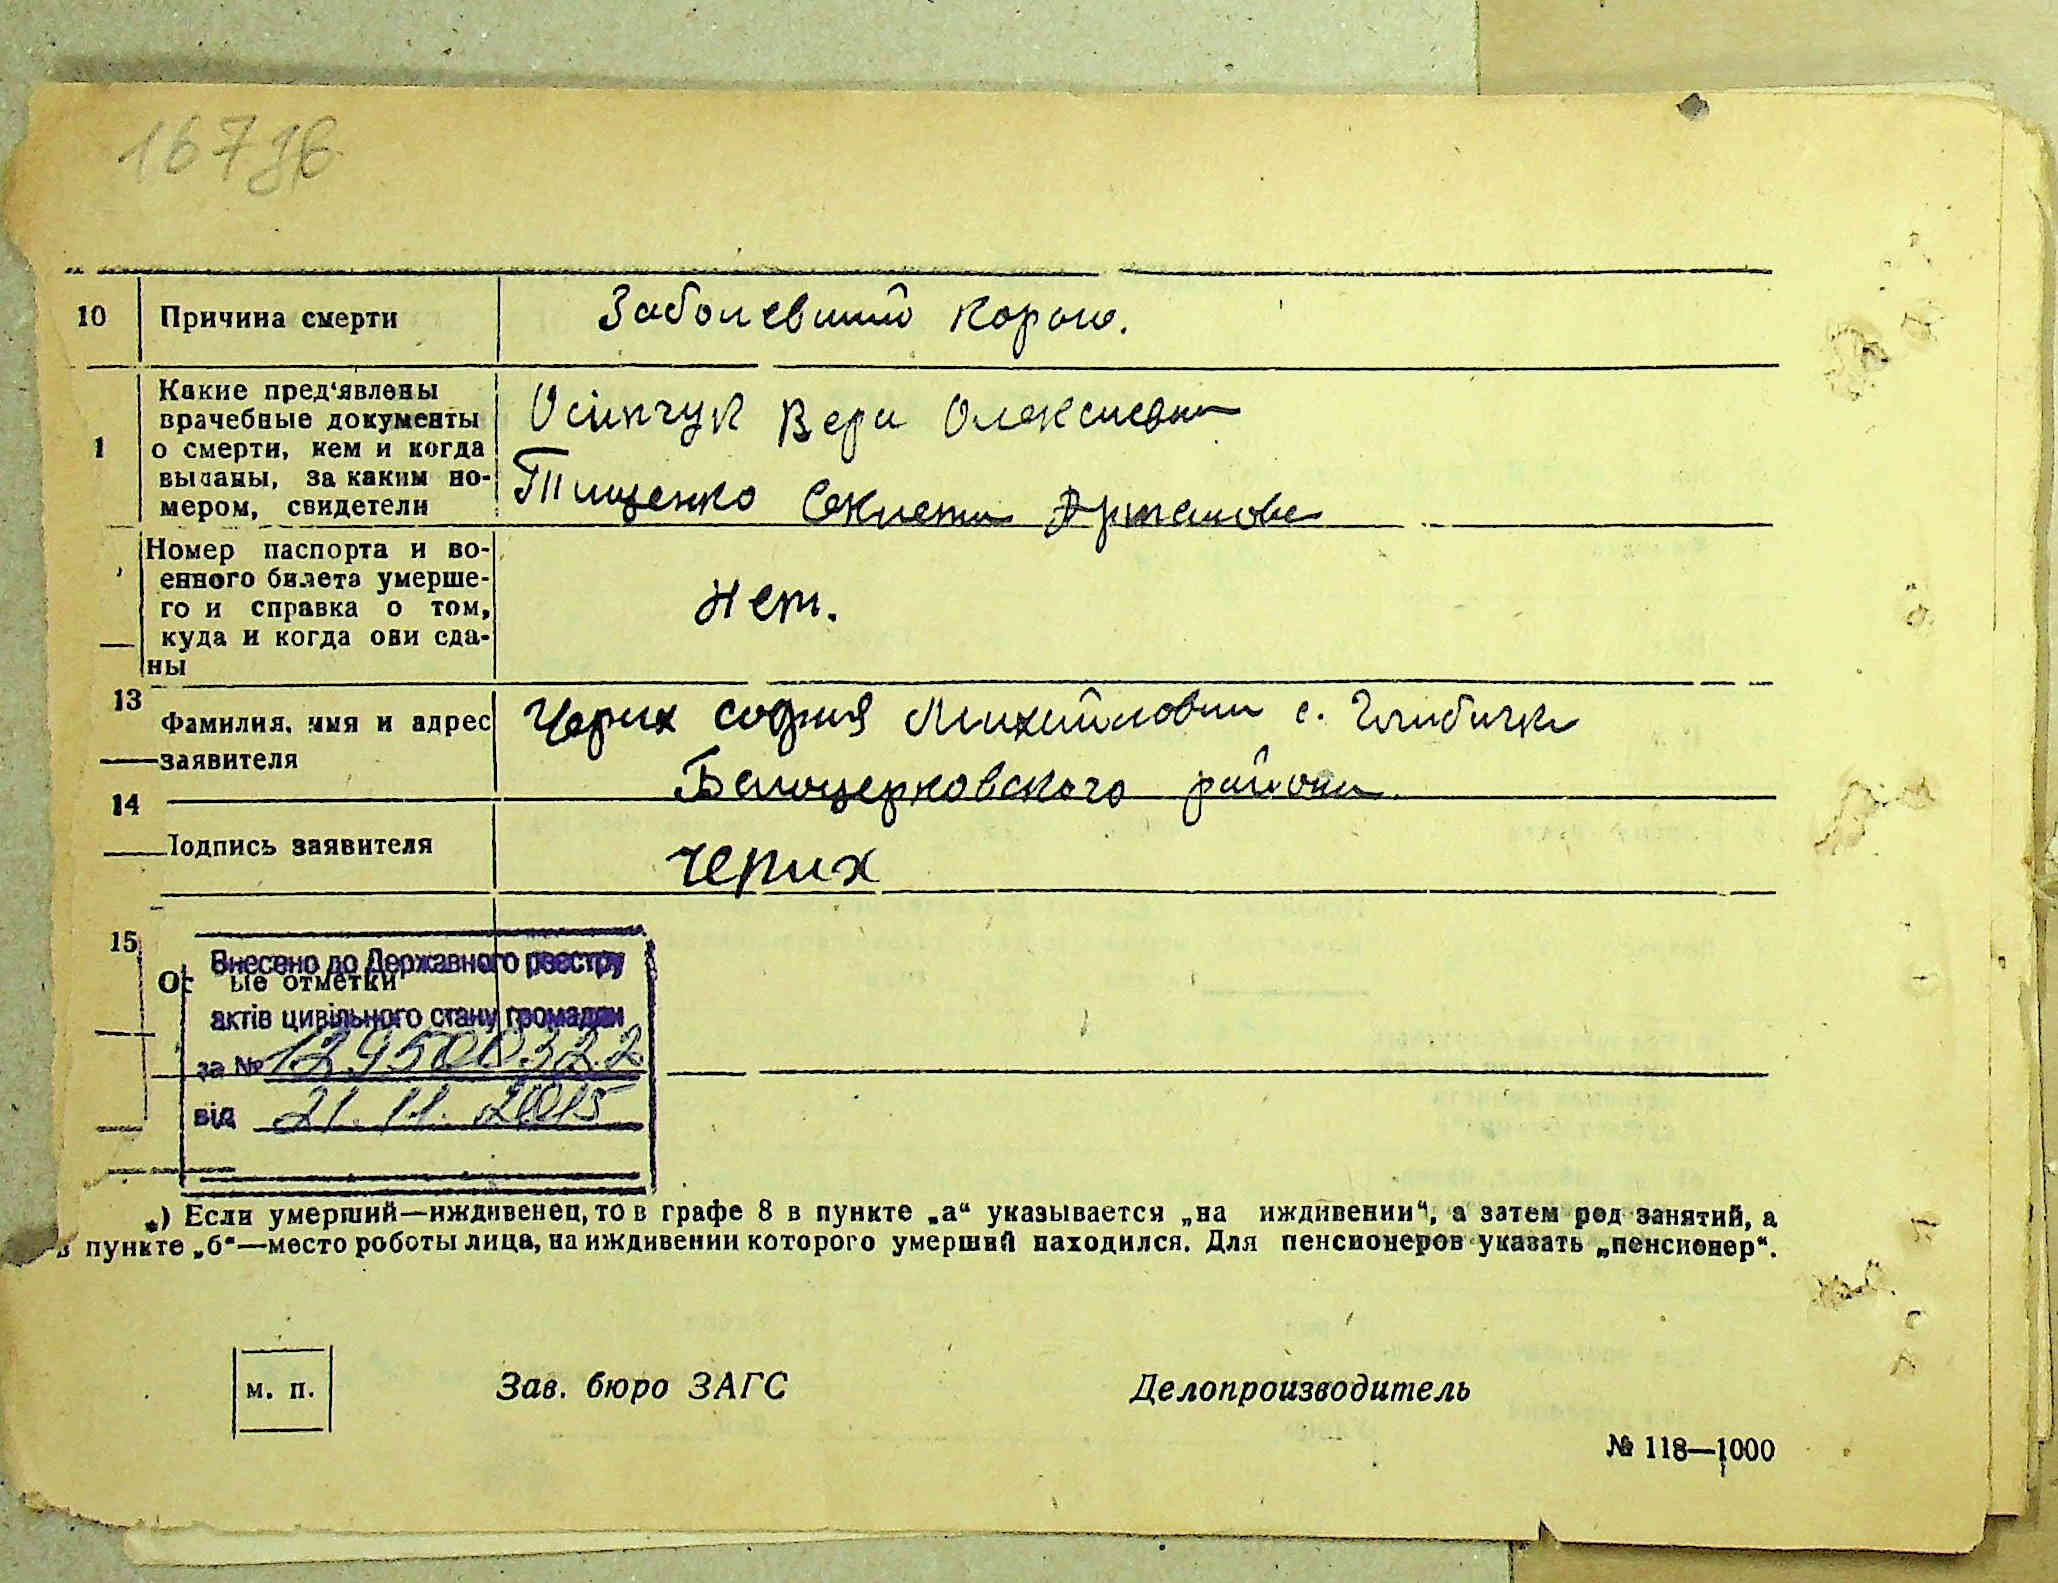 10
Причина смерти
Заболевший корью.
1
Какие пред'явлены
врачебные документы
о смерти, кем и когда
выданы, за каким но-
мером, свидетели
Осипчук Вера Олексиевна
Тищенко
Номер паспорта и во-
енного билета умерше-
го и справка о том,
куда и когда они сда-
ны
нет.
13
Фамилия, имя и адрес
заявителя
Черих София Михайловна с.
Белоцерковского района
14
Подпись заявителя
Черих
15
Внесено до Державного реєстру
ые отметки
актів цивільного стану громадян
за № 129500322
від 21.11.2015
*) Если умерший—иждивенец, то в графе 8 в пункте „а“ указывается „на иждивении“, а затем род занятий, а
в пункте „б“—место роботы лица, на иждивении которого умерший находился. Для пенсионеров указать „пенсионер“.
м. п.
Зав. бюро ЗАГС
Делопроизводитель
№ 118—1000